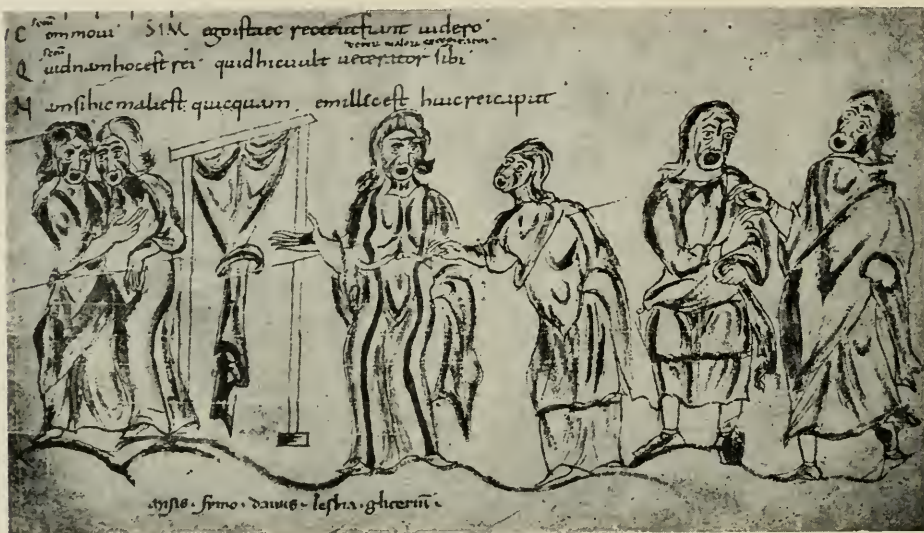 C emmovi SIM ego istaec recte ut fiant videro
Q uidnam hoc est rei quid hic vult veterator sibi
N am si hic mali est quicquam em illic est huic rei caput
misis · simo · davus · lesbia · glicerium ·